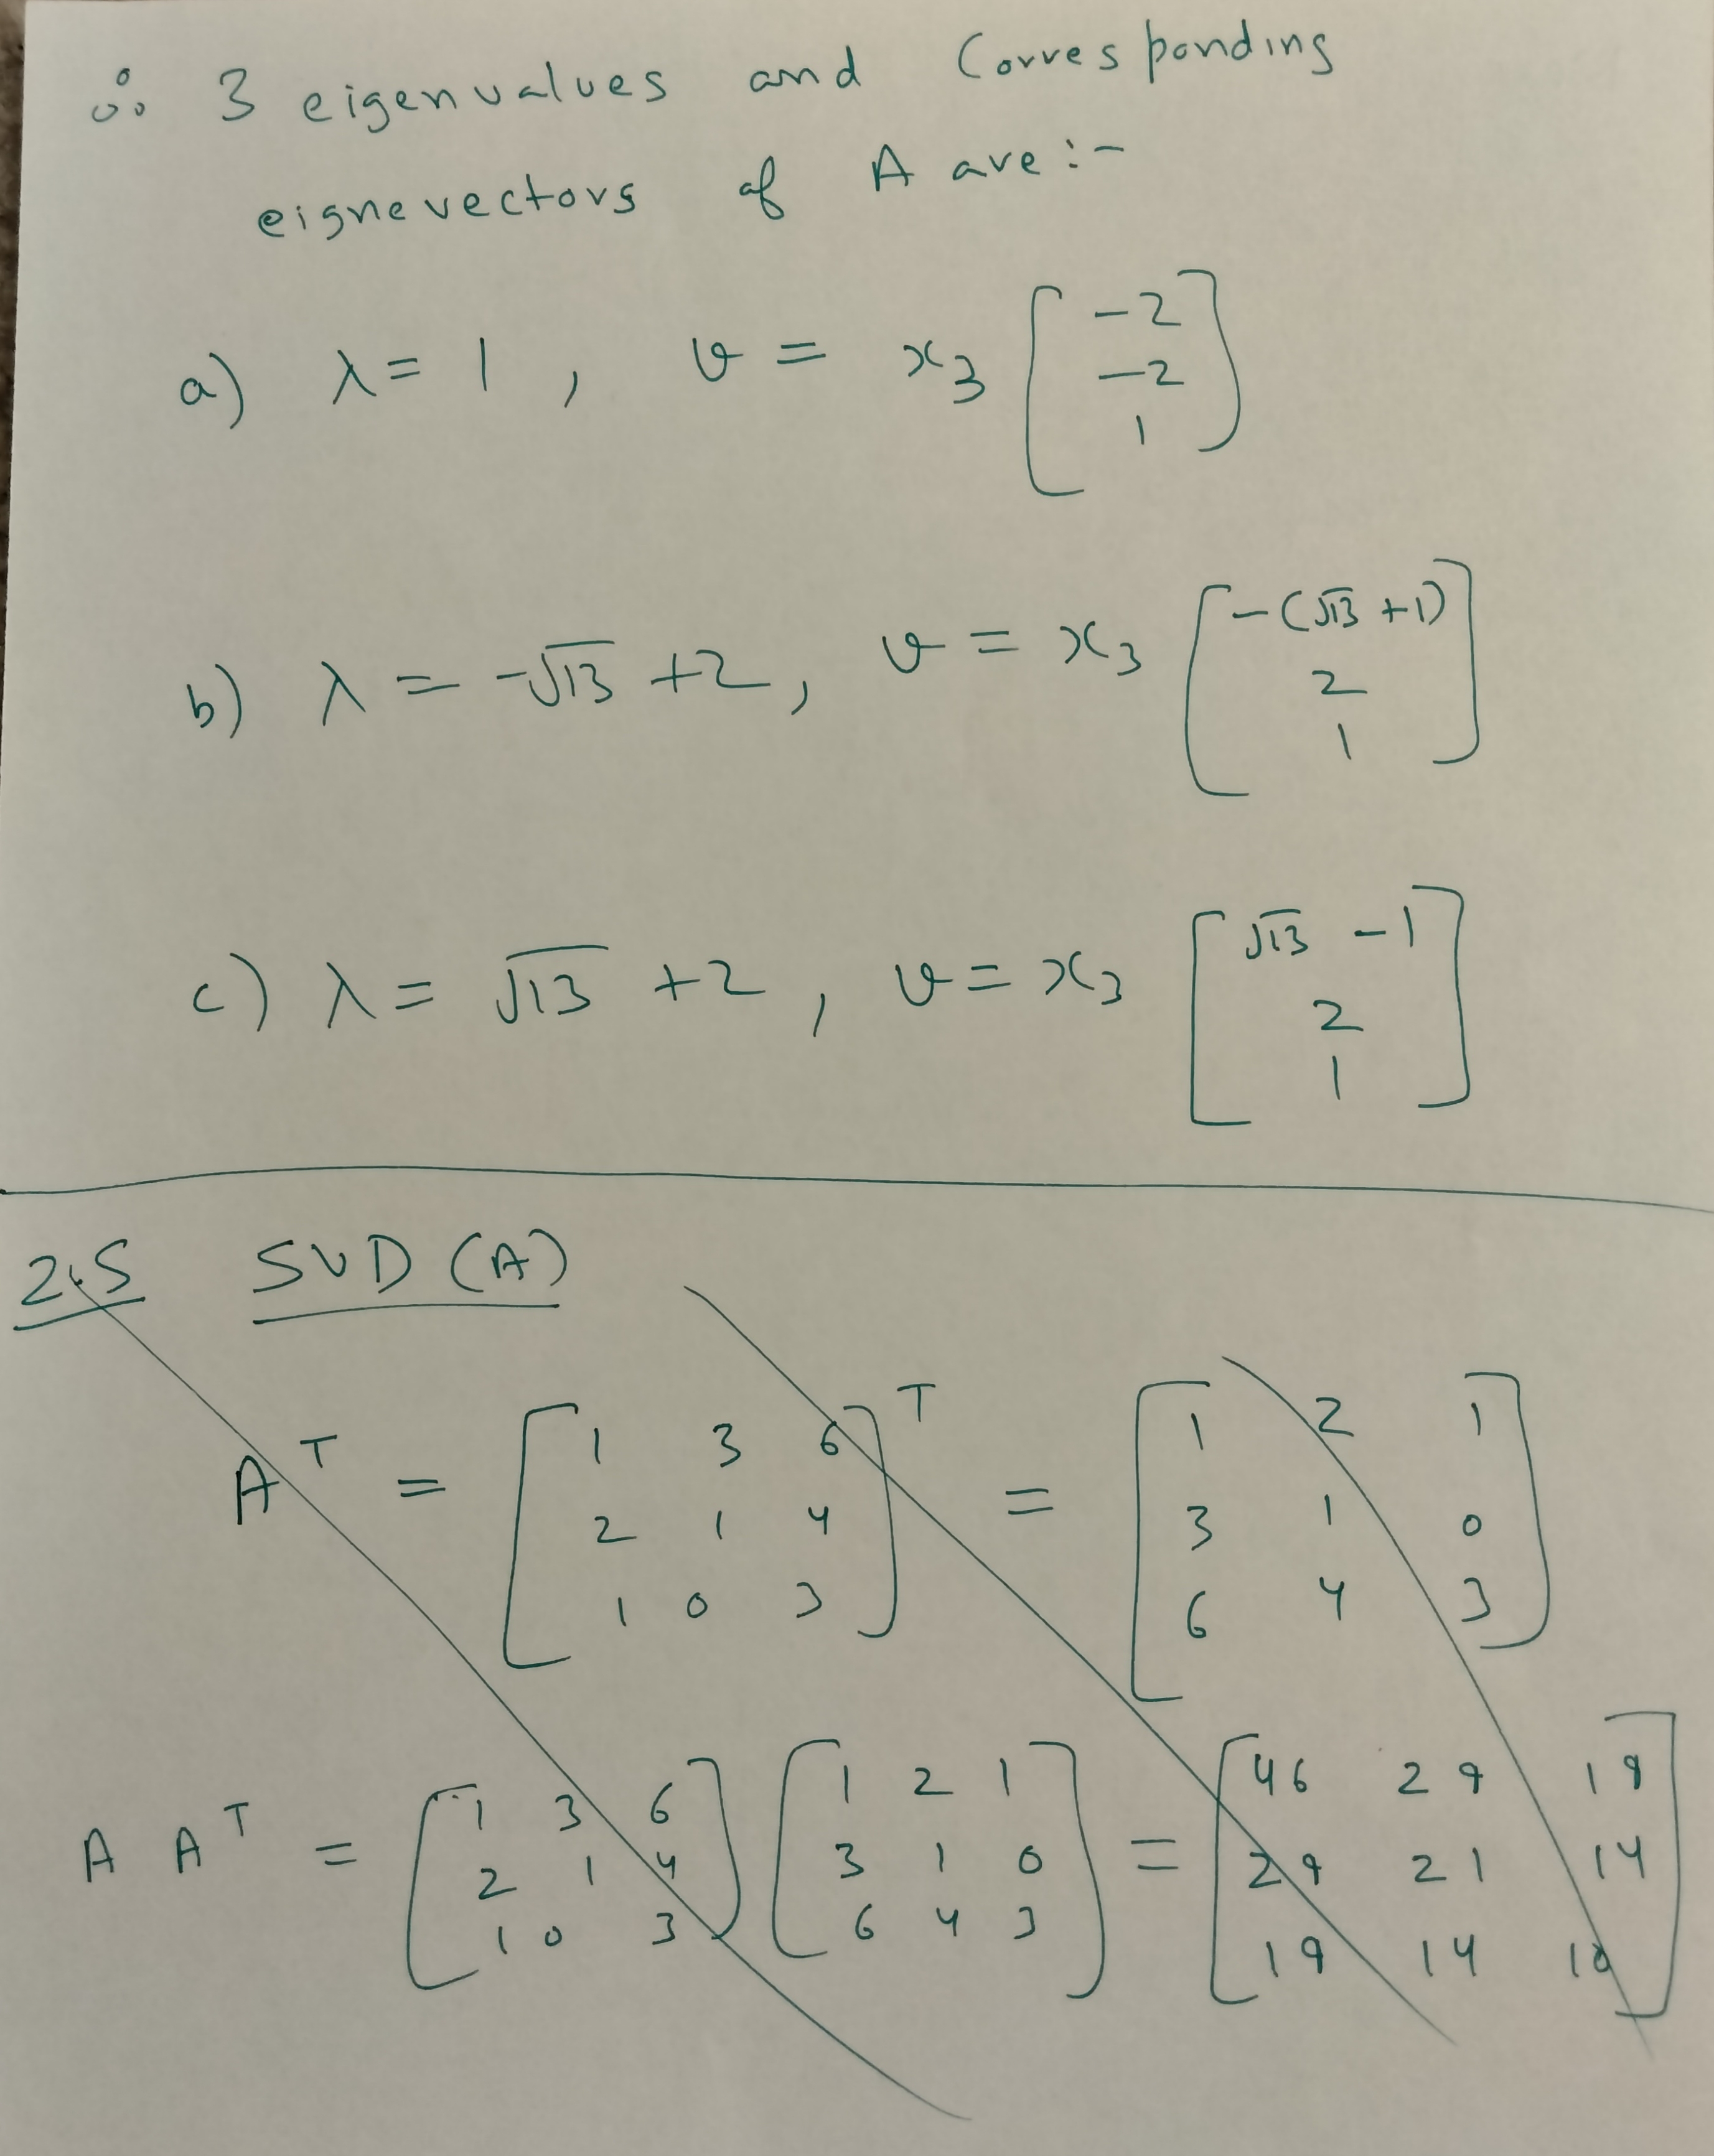 ∴ 3 eigenvalues and Corresponding
eignevectors of A are :-
a) λ = 1 , v = x₃ [ -2
-2
1 ]
b) λ = -√13 + 2, v = x₃ [ -(√13 + 1)
2
1 ]
c) λ = √13 + 2 , v = x₃ [ √13 - 1
2
1 ]
2.5 SVD (A)
Aᵀ = [ 1 3 6
2 1 4
1 0 3 ]ᵀ = [ 1 2 1
3 1 0
6 4 3 ]
A Aᵀ = [ 1 3 6
2 1 4
1 0 3 ] [ 1 2 1
3 1 0
6 4 3 ] = [ 46 29 19
29 21 14
19 14 10 ]